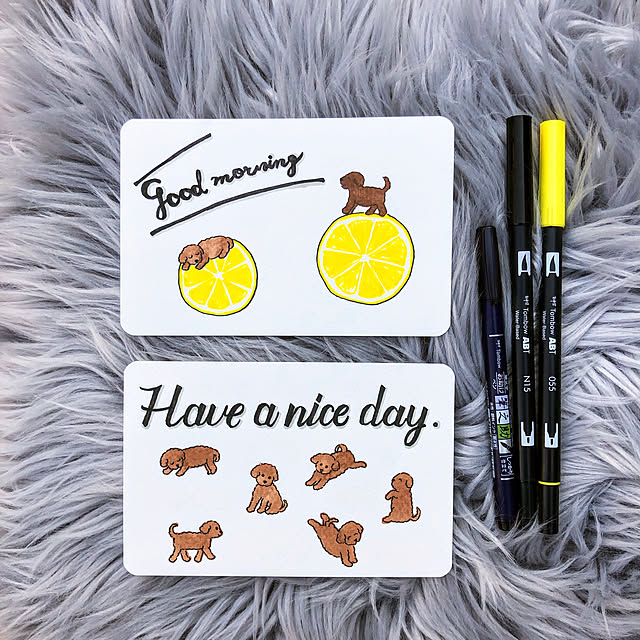 Good morning
Have a nice day.
Tombow ABT
Water-Based
N15
Tombow ABT
Water-Based
055